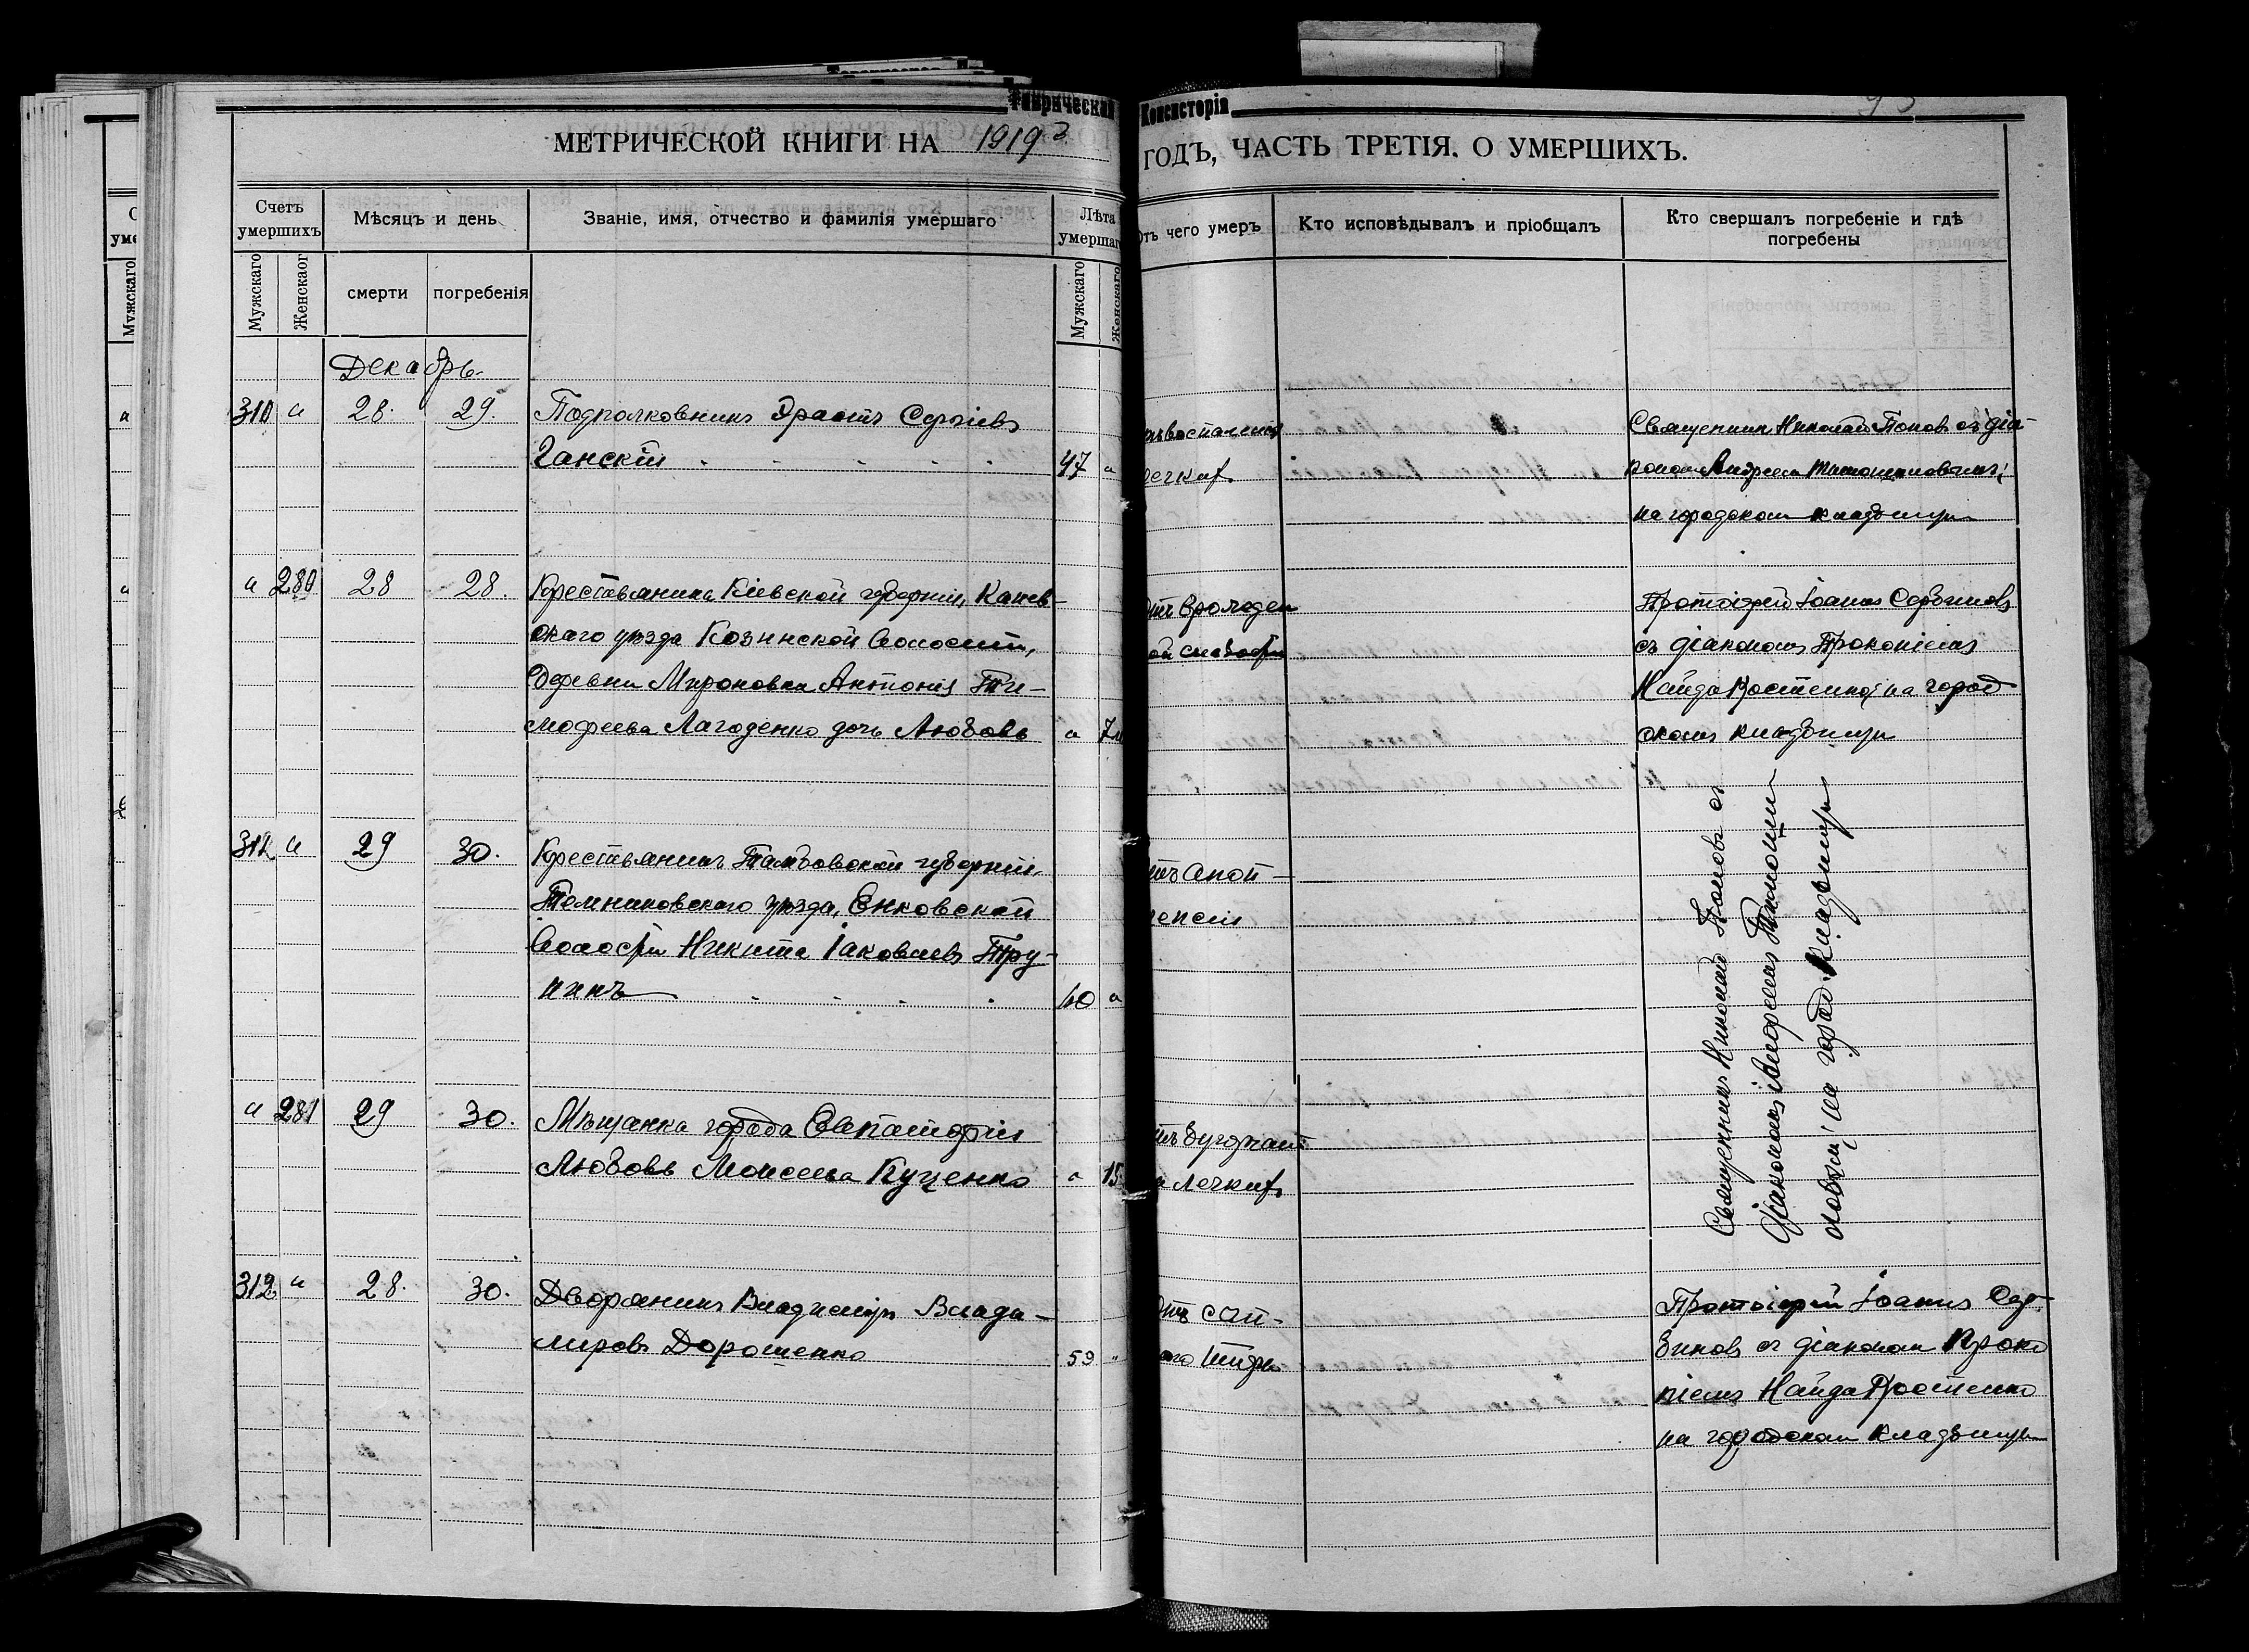 Таврической Консисторія
МЕТРИЧЕСКОЙ КНИГИ НА 1919 г. ГОДЪ, ЧАСТЬ ТРЕТІЯ. О УМЕРШИХЪ.
Счетъ умершихъ
Мѣсяцъ и день
Званіе, имя, отчество и фамилія умершаго
Лѣта умершаг
Отъ чего умеръ
Кто исповѣдывалъ и пріобщалъ
Кто свершалъ погребеніе и гдѣ погребены
Мужскаго
Женскаог
смерти
погребенія
Мужскаго
Женскаго
Декабрь
310 " 28. 29.
Подполковникъ Эрастъ Сергіевъ
Ганскій
47 "
воспаленія
легких
Священник Николай Попов съ діа-
коном Андреем
на городском кладбищѣ
" 280 28 28.
Крестьянина Кіевской губерніи, Канев-
скаго уѣзда Козинской Волости,
Деревни Мироновки Антонія Ти-
мофеева Лагоденко дочь Любовь
" 7м
отъ врожден
ой слабости
Протоіерей Іоаннъ Сербиновъ
съ діакономъ Прокопіемъ
Найда Костенко на город
скомъ кладбищѣ
312 " 29 30.
Крестьянинъ Тамбовской губерніи,
Темниковскаго уѣзда, Енковской
Волости Никита Іаковлевъ Тру-
нинъ
60 "
отъ апоп-
лексіи
Священникъ Николай Поповъ съ
діакономъ Андреемъ
на город. Кладбищѣ
" 281 29 30.
Мѣщанка города Евпаторіи
Любовь Моисеева Куценко
" 15
легких
312 " 28. 30.
Дворянинъ Владиміръ Влади-
міровъ Дорошенко
59 "
отъ сып-
ного тифа
Протоіерей Іоаннъ Сер-
биновъ съ діаконом Проко
піемъ Найда Костенко
на городском кладбищѣ